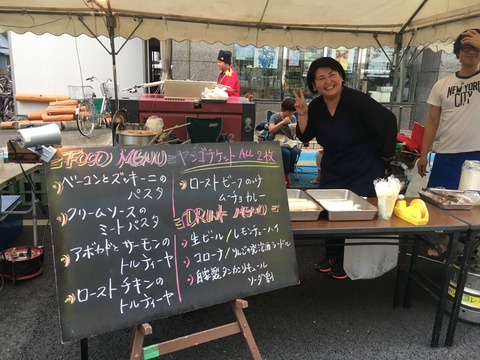 FOOD MENU
ベーコンとズッキーニの
パスタ
クリームソースの
ミートパスタ
アボカドとサーモンの
トルティーヤ
ローストチキンの
トルティーヤ
ヤンゴチケット ALL 2枚
ローストビーフのっけ
ムーチョカレー
DRINK MENU
生ビール / レモンチューハイ
コロナ /
ソーダ割
NEW YORK
CITY.